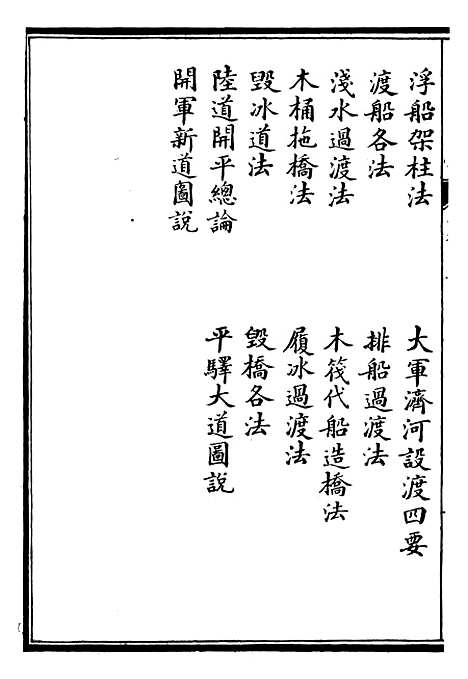 浮船架柱法
大軍濟河設渡四要
渡船各法
排船過渡法
淺水過渡法
木筏代船造橋法
木桶拖橋法
履冰過渡法
毀冰道法
毀橋各法
陸道開平總論
平驛大道圖說
開軍新道圖說